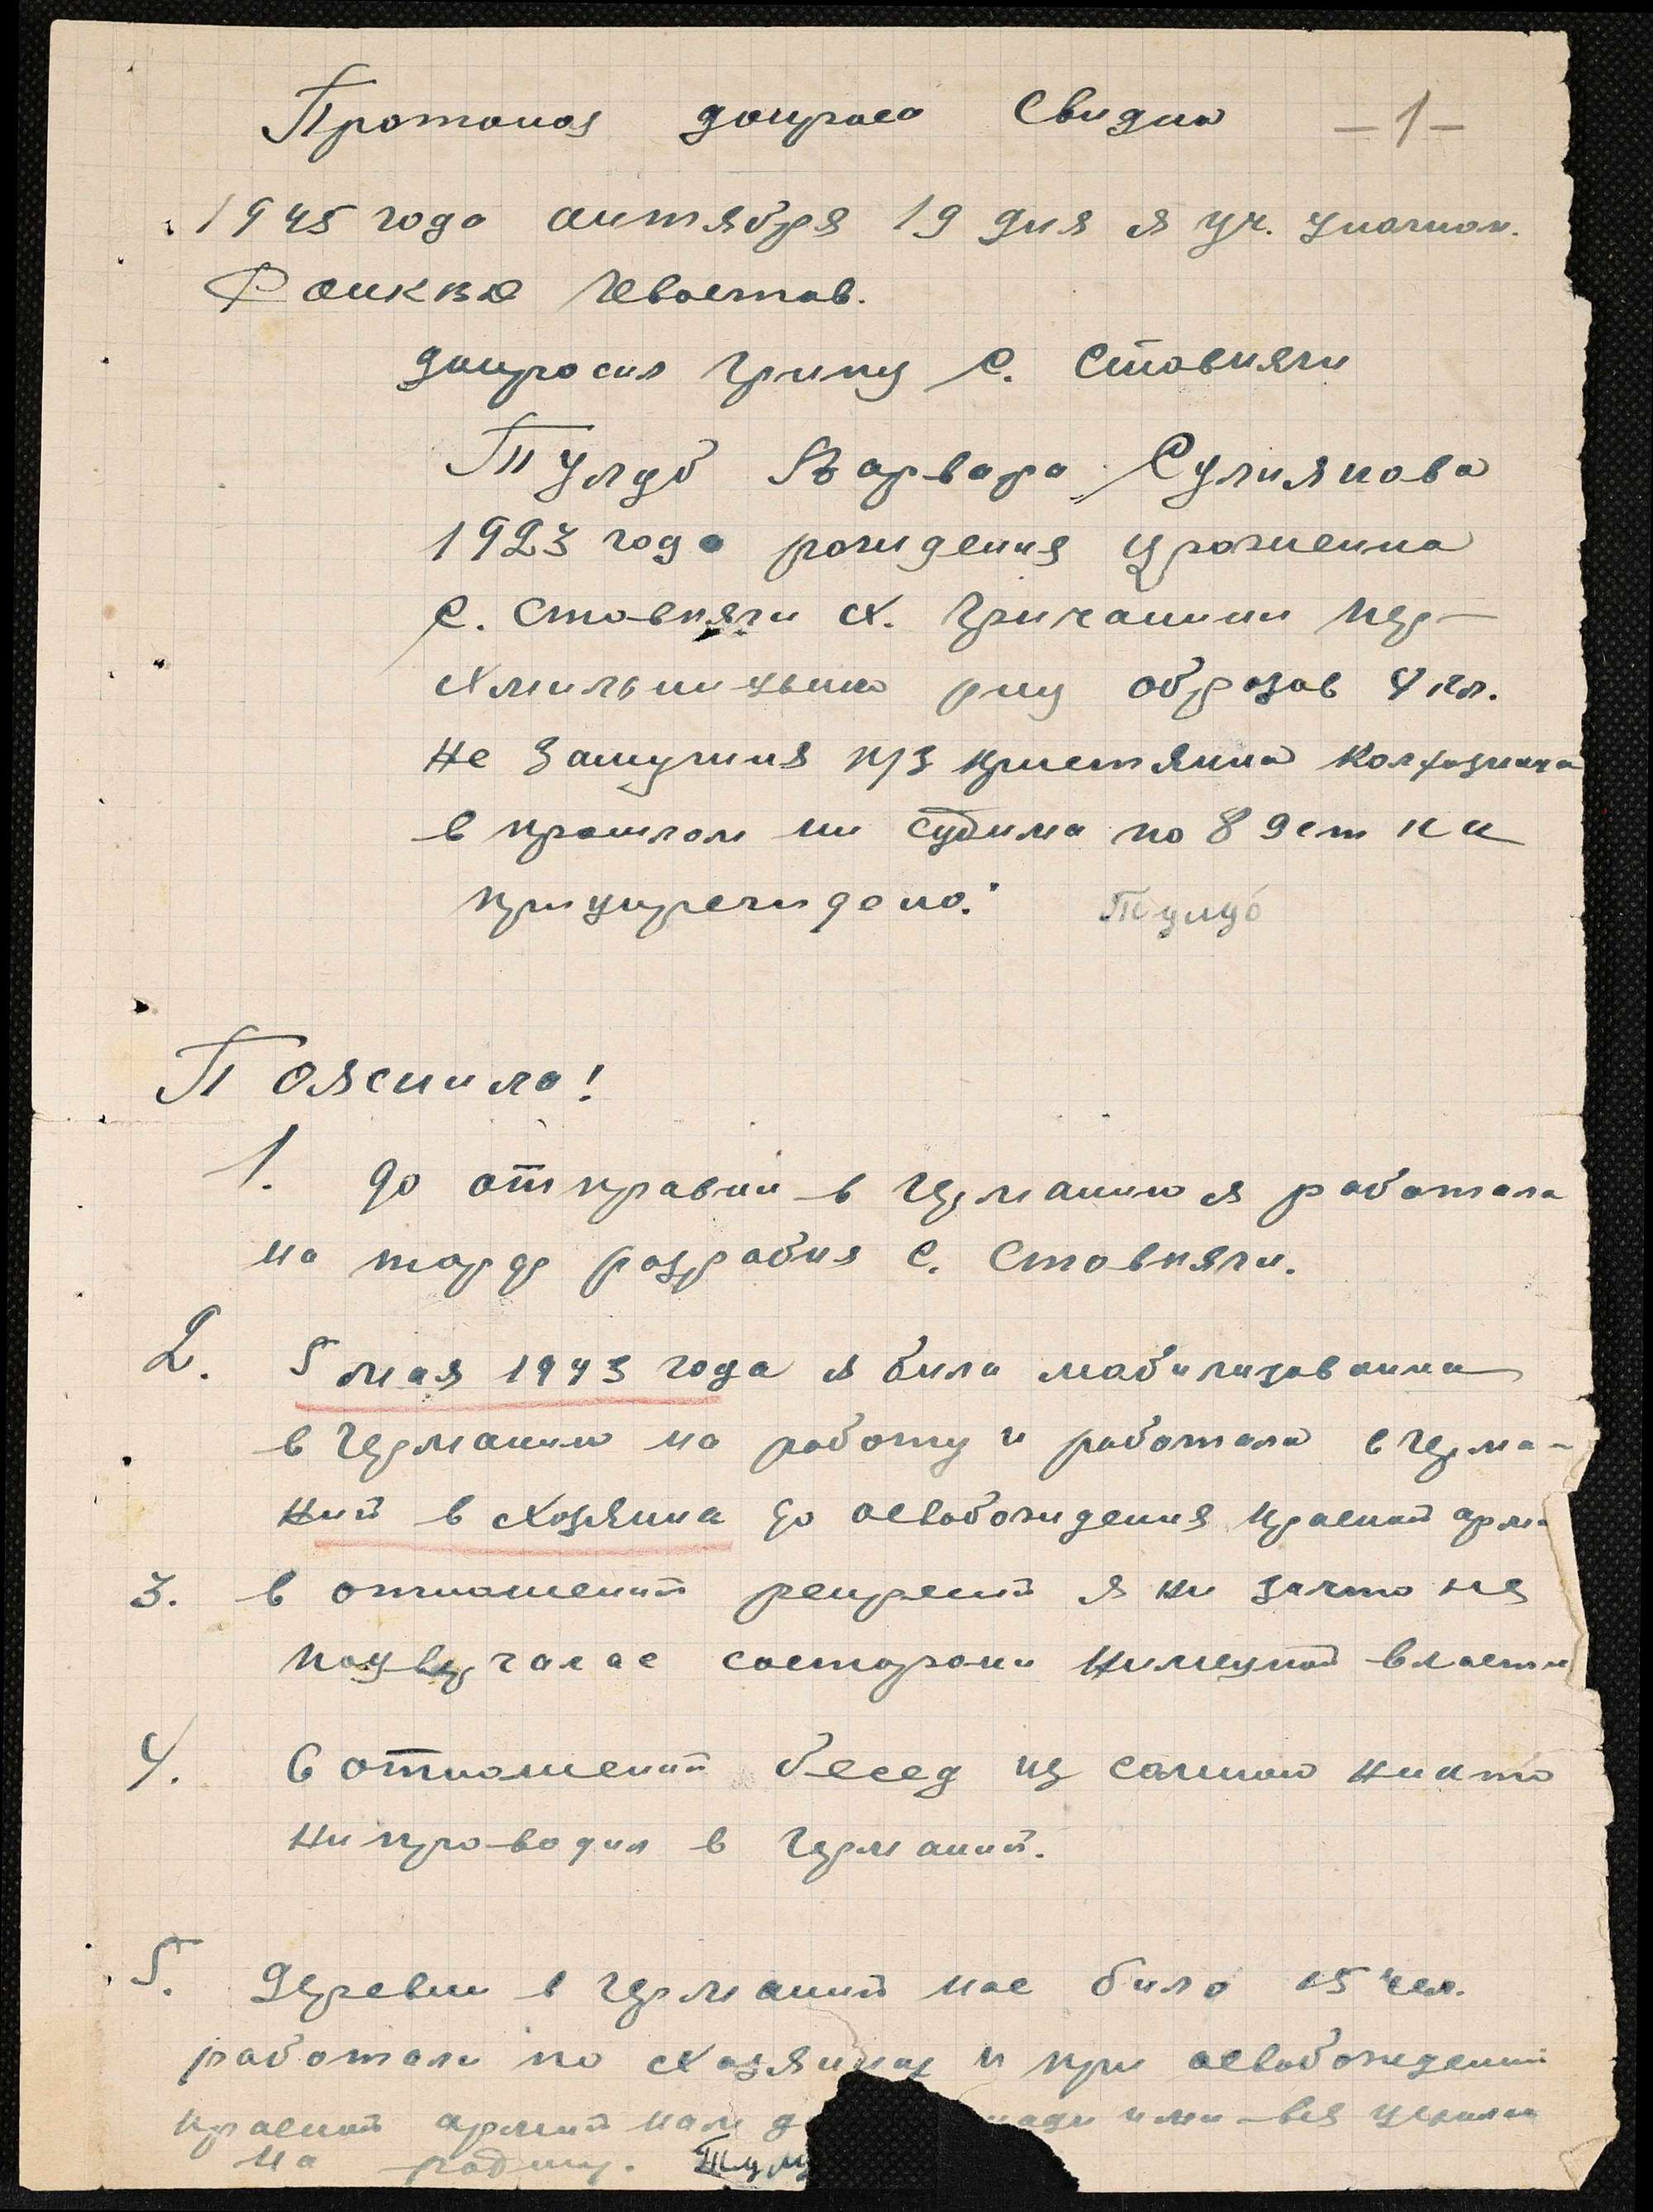 Протокол допроса Свидка -1-
1945 года октября 19 дня я уч. уполном.
Ф Хвостов.
допросил гр-нку с. Стовпяги
Тулуб Варвара Сулиянова
1923 года рождения уроженна
с. Стовпяги Х. Гричанини Пер-
Хмильницького р-ну образов 4 кл.
не замужняя п/з кристянка колхозница
в прошлом ни судима по 89 ст к к
приупреждено: Тулуб
Пояснила!
1. до отправки в Германию я работала
на торф розрабкя с. Стовпяги.
2. 5 мая 1943 года я била мобилизованна
в Германию на работу и работала в Герма-
ний в Хозяина до освобождения красной арми
3. в отношений репресий я ни зачто не
подвергалас состорони нимецкой власти
4. в отношений бесед из самною никто
ни проводил в Германий.
5. Деревни в Германий нас било 15 чел.
работали по Хозяинах и при освобождений
красной армий нам д ими вся
на родину. Тулу